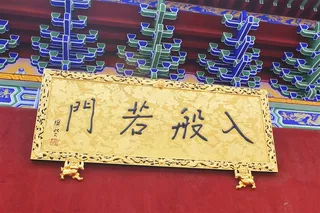 入般若門